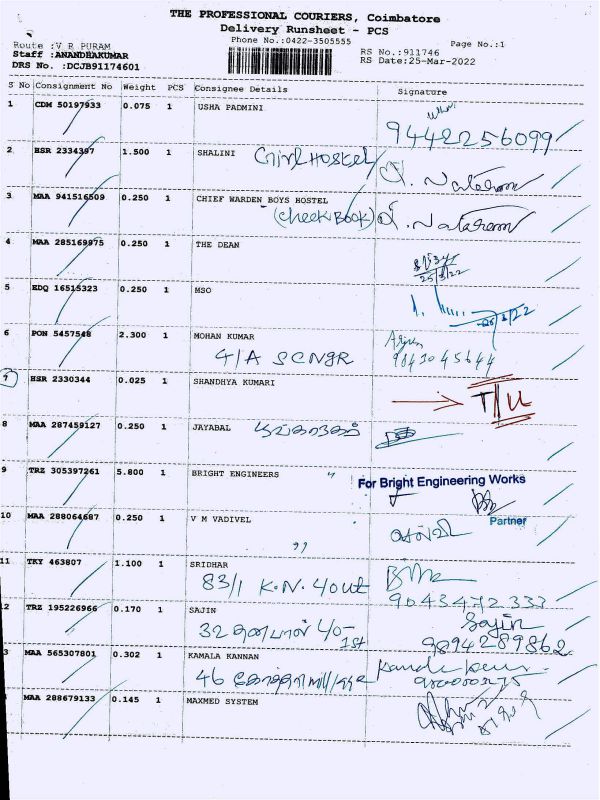 THE PROFESSIONAL COURIERS, Coimbatore
Delivery Runsheet - PCS
Phone No.:0422-3505555
Page No.:1
Route :V R PURAM
Staff :ANANDHAKUMAR
DRS No. :DCJB91174601
RS No.:911746
RS Date:25-Mar-2022
S No Consignment No Weight PCS Consignee Details Signature
1 CDM 50197933 0.075 1 USHA PADMINI
9442256099
2 HSR 2334397 1.500 1 SHALINI Girl Hostel
3 MAA 941516509 0.250 1 CHIEF WARDEN BOYS HOSTEL
(Cheek Book)
4 MAA 285169975 0.250 1 THE DEAN
25/3/22
5 EDQ 16515323 0.250 1 MSO
6 PON 5457548 2.300 1 MOHAN KUMAR
4/A SCNGR 9843045644
7 HSR 2330344 0.025 1 SHANDHYA KUMARI T/U
8 MAA 287459127 0.250 1 JAYABAL
9 TRZ 305397261 5.800 1 BRIGHT ENGINEERS " For Bright Engineering Works
Partner
10 MAA 288064687 0.250 1 V M VADIVEL
"
11 TKY 463807 1.100 1 SRIDHAR
83/1 K.N. Yout 9043472333
12 TRZ 195226966 0.170 1 SAJIN Sajin
32 1st 9894289862
3 MAA 565307801 0.302 1 KAMALA KANNAN
46
MAA 288679133 0.145 1 MAXMED SYSTEM